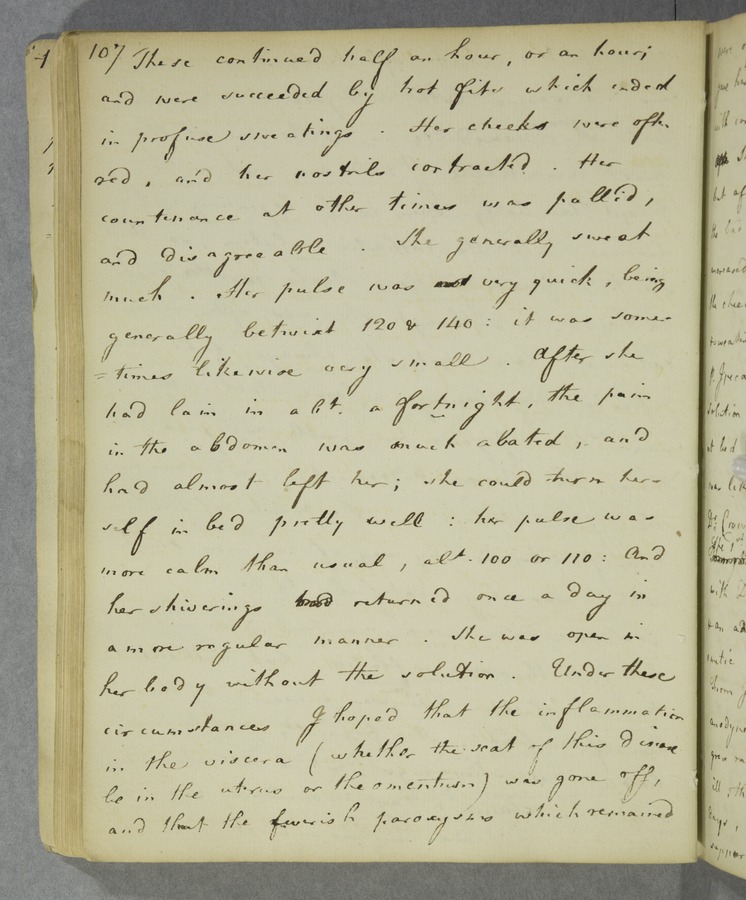 107 These continued half an hour, or an hour;
and were succeeded by hot fits which ended
in profuse sweatings. Her cheeks were often
red, and her nostrils contracted. Her
countenance at other times was pallid,
and disagreeable. She generally sweat
much. Her pulse was very quick, being
generally betwixt 120 & 140: it was some-
=times likewise very small. After she
had lain in abt. a fortnight, the pain
in the abdomen was much abated, and
had almost left her; she could turn her-
self in bed pretty well: her pulse was
more calm than usual, abt. 100 or 110: And
her shiverings returned once a day in
a more regular manner. She was open in
her body without the solution. Under these
circumstances I hoped that the inflammation
in the viscera (whether the seat of this disease
be in the uterus or the omentum) was gone off,
and that the feverish paroxysms which remained